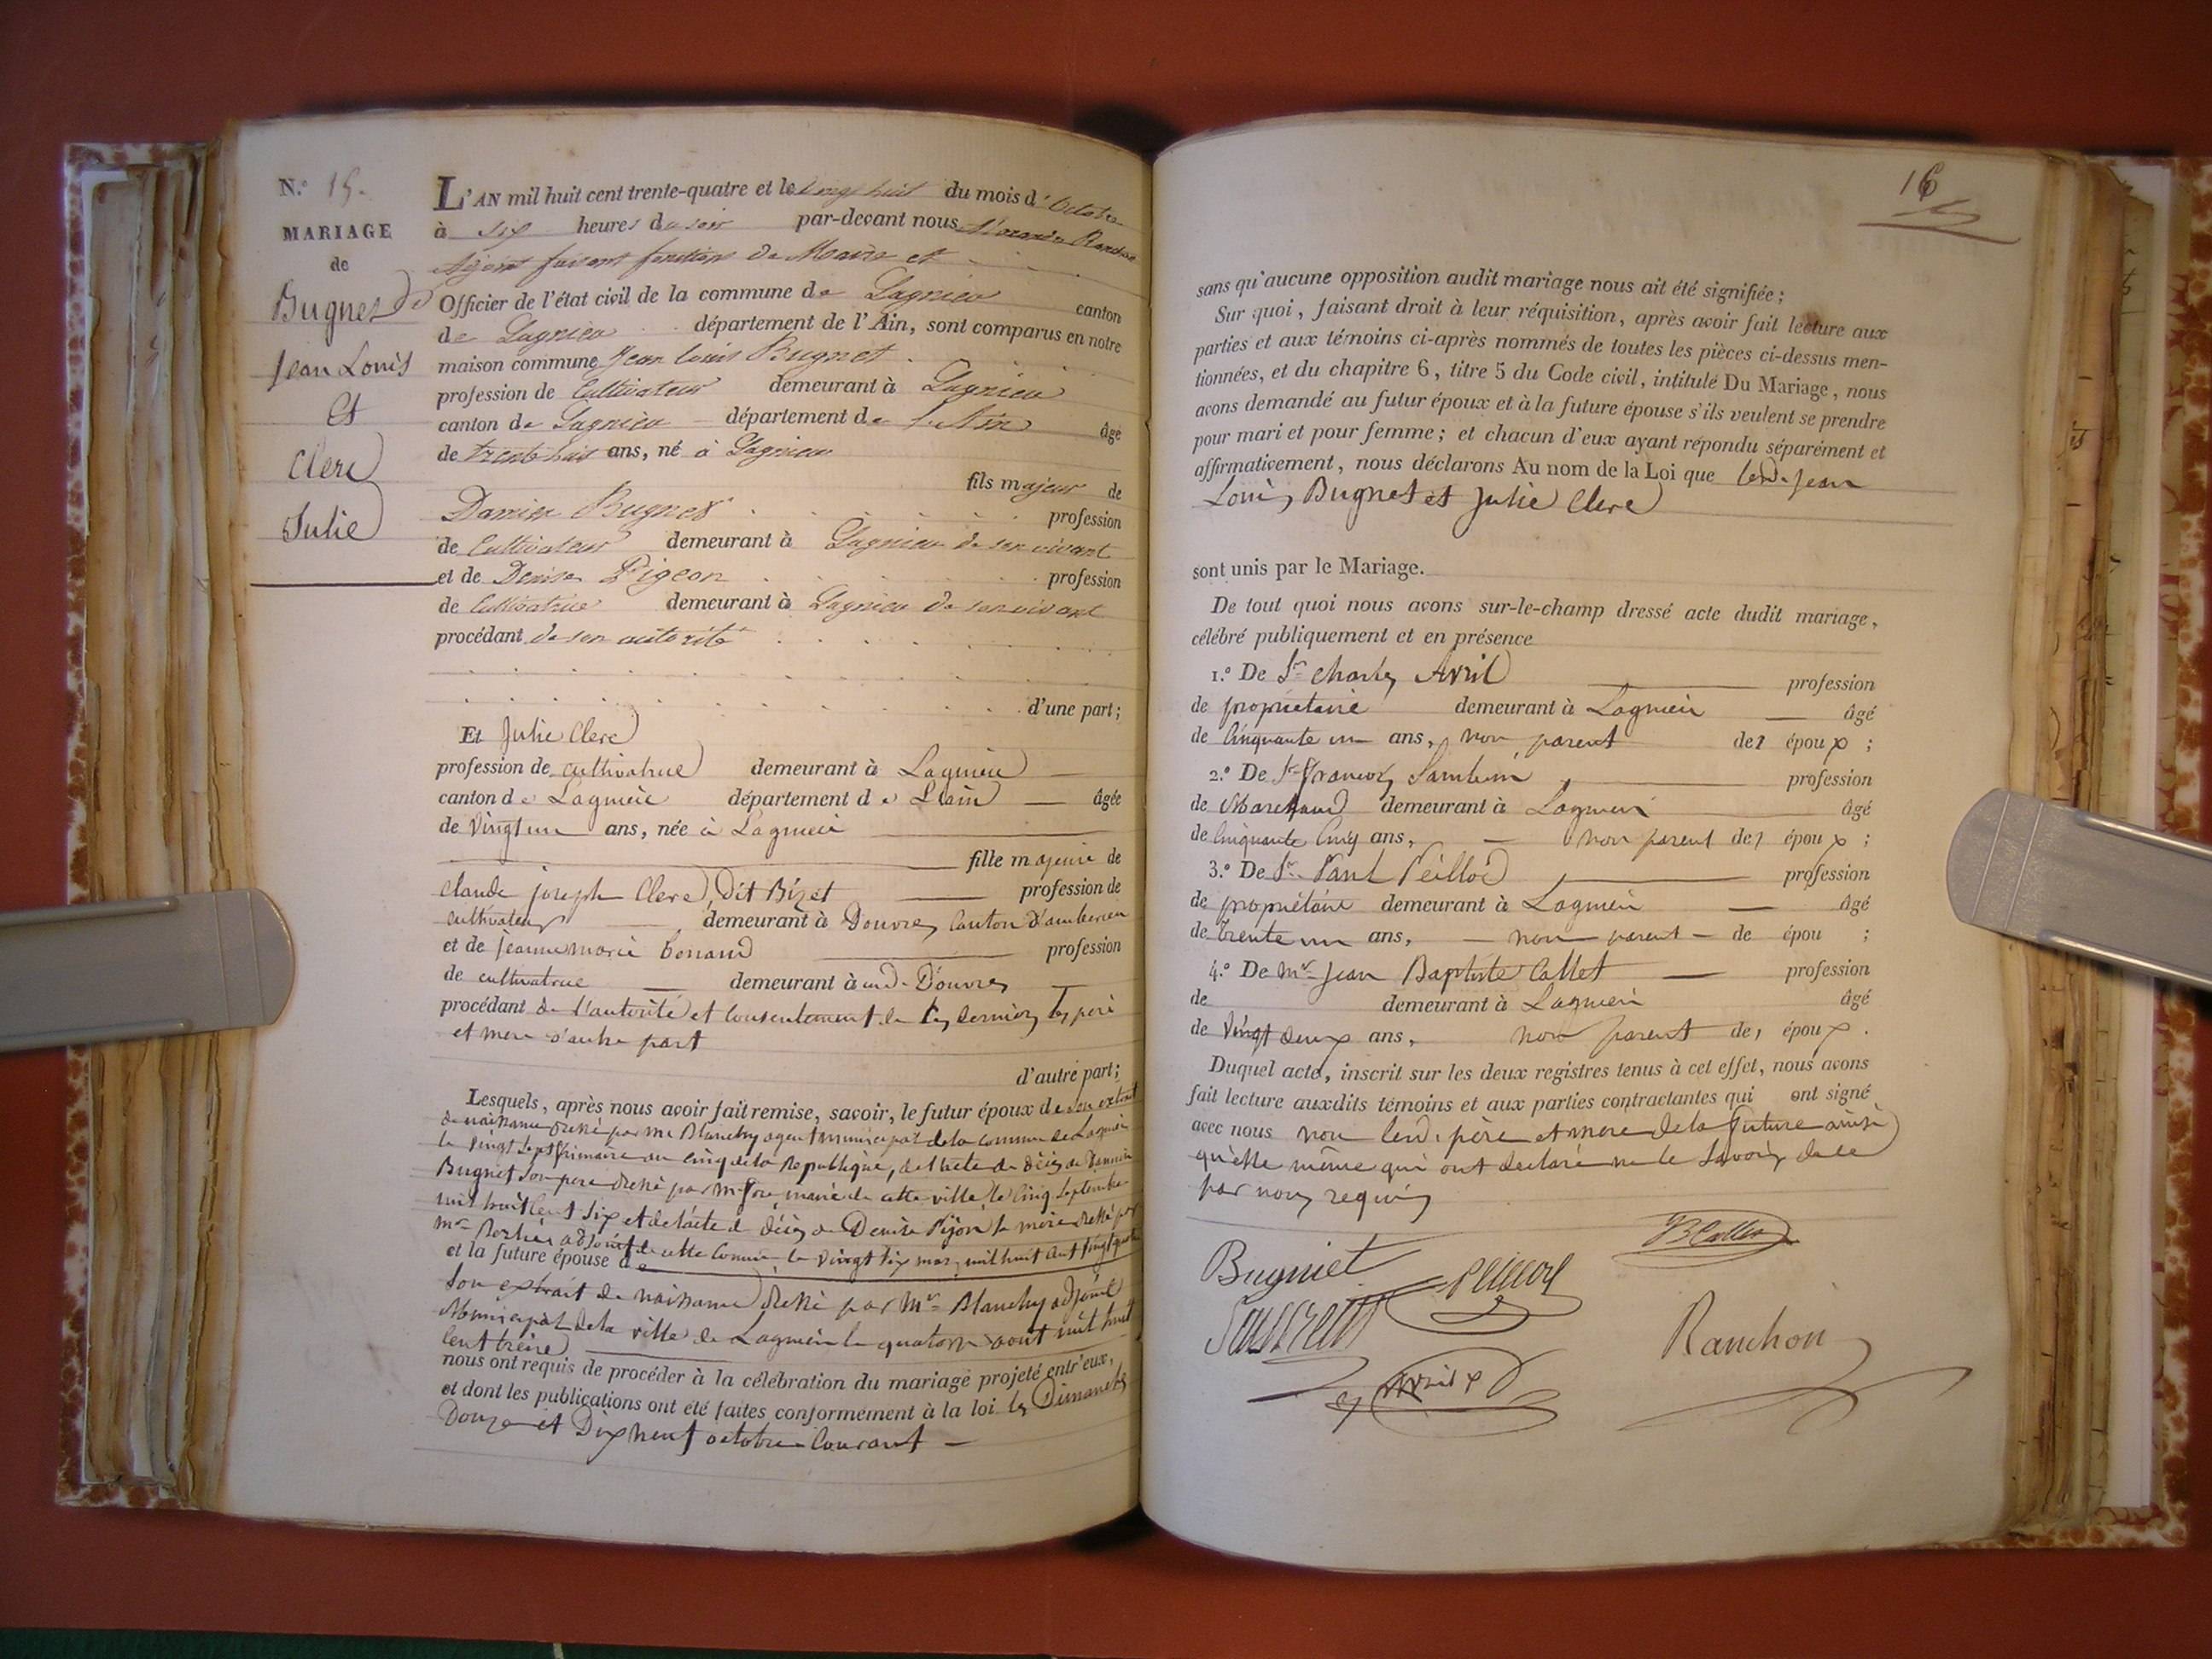 N.o 15.
MARIAGE
de
Bugnet
Jean Louis
Et
Clerc
Julie
L'AN mil huit cent trente-quatre et le vingt huit du mois d'Octobre
à six heures du soir par-devant nous Ranchon
Adjoint faisant fonctions de Maire et
Officier de l'état civil de la commune de Lagnieu canton
de Lagnieu département de l'Ain, sont comparus en notre
maison commune Jean Louis Bugnet
profession de Cultivateur demeurant à Lagnieu
canton de Lagnieu département de l'Ain âgé
de trente huit ans, né à Lagnieu
fils majeur de
Damien Bugnet profession
de Cultivateur demeurant à Lagnieu de son vivant
et de Denise Pigeon profession
de Cultivatrice demeurant à Lagnieu de son vivant
procédant de son autorité
d'une part;
Et Julie Clerc
profession de cultivatrice demeurant à Lagnieu
canton de Lagnieu département de Lain âgée
de vingt un ans, née à Lagnieu
fille majeure de
Claude joseph Clerc, Dit Bizet profession de
cultivateur demeurant à Douvres Canton D'amberieu
et de jeanne marie Bonand profession
de cultivatrice demeurant à aud. Douvres
procédant de l'autorité et consentement de ses derniers ses père
et mere d'autre part
d'autre part;
Lesquels, après nous avoir fait remise, savoir, le futur époux de son extrait
de naissance dressé par mr Blanchy agent municipal de la commune de Lagnieu
le vingt sept frimaire an cinq de la Republique, de l'acte de décès de Damien
Bugnet son pere dressé par mr maire de cette ville, le cinq septembre
mil huit cent six et de l'acte de décès de Denise Pijon sa mère dressé par
mr adjoint de cette Commune le vingt six mars mil huit cent vingt quatre
et la future épouse de
son extrait de naissance dressé par Mr Blanchy adjoint
Municipal de la ville de Lagnieu le quatorze aout mil huit
cent treize
nous ont requis de procéder à la célébration du mariage projeté entr'eux,
et dont les publications ont été faites conformément à la loi les Dimanches
Douze et Dix neuf octobre Courant
16
sans qu'aucune opposition audit mariage nous ait été signifiée;
Sur quoi, faisant droit à leur réquisition, après avoir fait lecture aux
parties et aux témoins ci-après nommés de toutes les pièces ci-dessus men-
tionnées, et du chapitre 6, titre 5 du Code civil, intitulé Du Mariage, nous
avons demandé au futur époux et à la future épouse s'ils veulent se prendre
pour mari et pour femme; et chacun d'eux ayant répondu séparément et
affirmativement, nous déclarons Au nom de la Loi que lesd. Jean
Louis Bugnet et Julie Clerc
sont unis par le Mariage.
De tout quoi nous avons sur-le-champ dressé acte dudit mariage,
célébré publiquement et en présence
1.o De Sr Charles Avril profession
de propriétaire demeurant à Lagnieu âgé
de Cinquante un ans, non parent des époux;
2.o De Sr françois profession
de Marchand demeurant à Lagnieu âgé
de Cinquante Cinq ans, non parent des époux;
3.o De Sr Paul Peillod profession
de propriétaire demeurant à Lagnieu âgé
de Trente un ans, non parent de épou ;
4.o De mr Jean Baptiste Collet profession
de demeurant à Lagnieu âgé
de vingt deux ans, non parent des époux.
Duquel acte, inscrit sur les deux registres tenus à cet effet, nous avons
fait lecture auxdits témoins et aux parties contractantes qui ont signé
avec nous non lesd. père et mere de la future ainsi
qu'elle même qui ont déclaré ne le savoir de ce
par nous requis
Bugniet
Ranchon
Avril